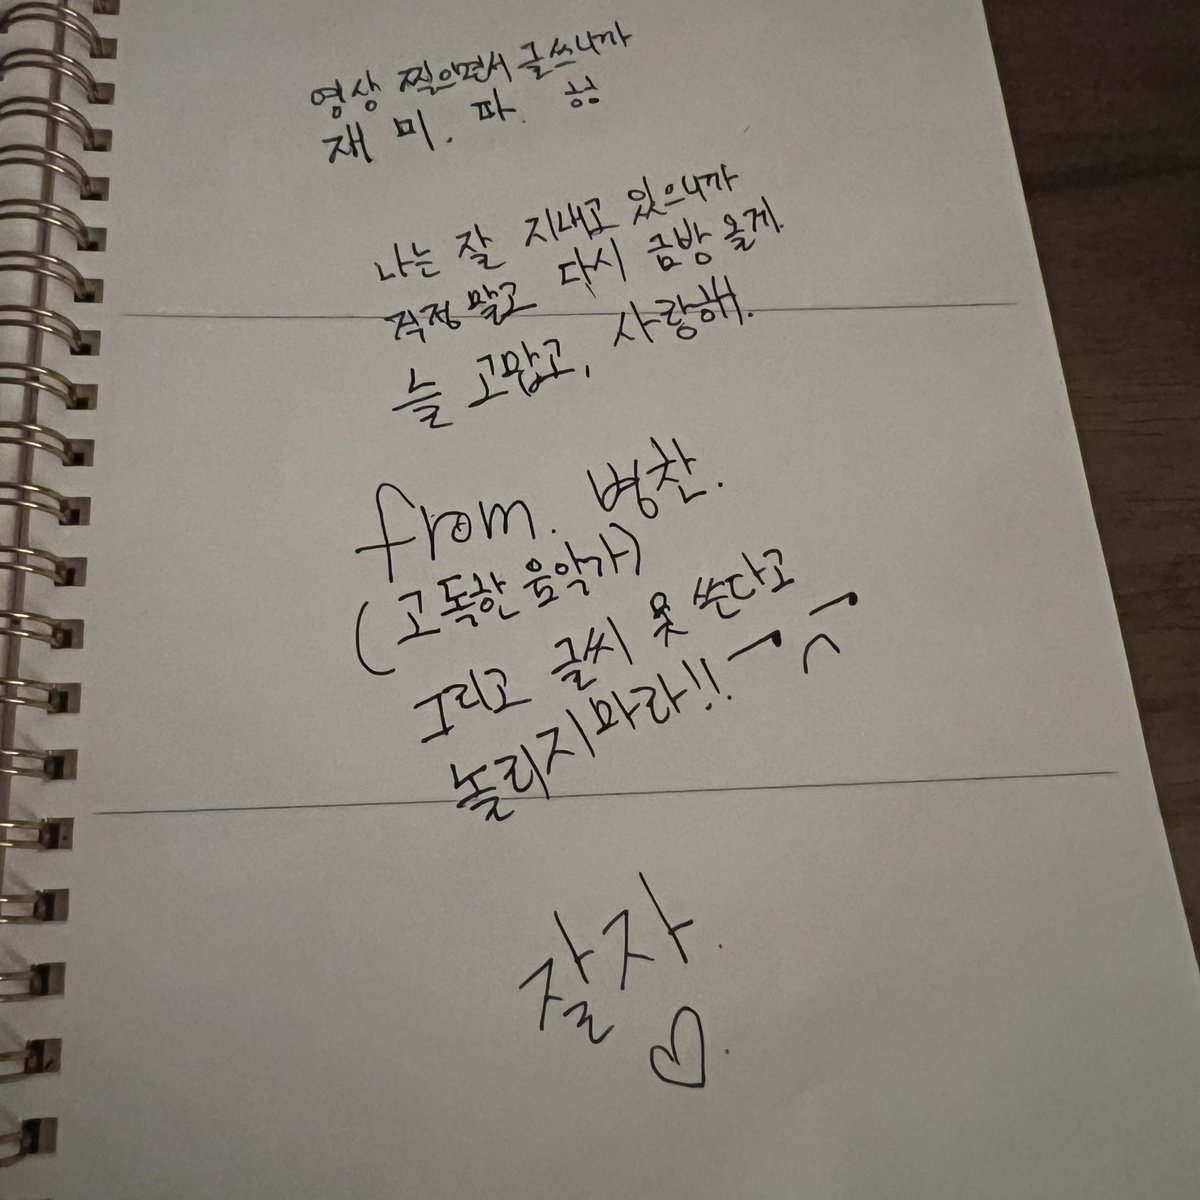 영상 찍으면서 글쓰니까
재 미. 파. ㅎㅎ
나는 잘 지내고 있으니까
걱정 말고 다시 금방 올게.
늘 고맙고, 사랑해.
from. 병찬.
(고독한 음악가)
그리고 글씨 못 쓴다고
놀리지마라!!
잘자.